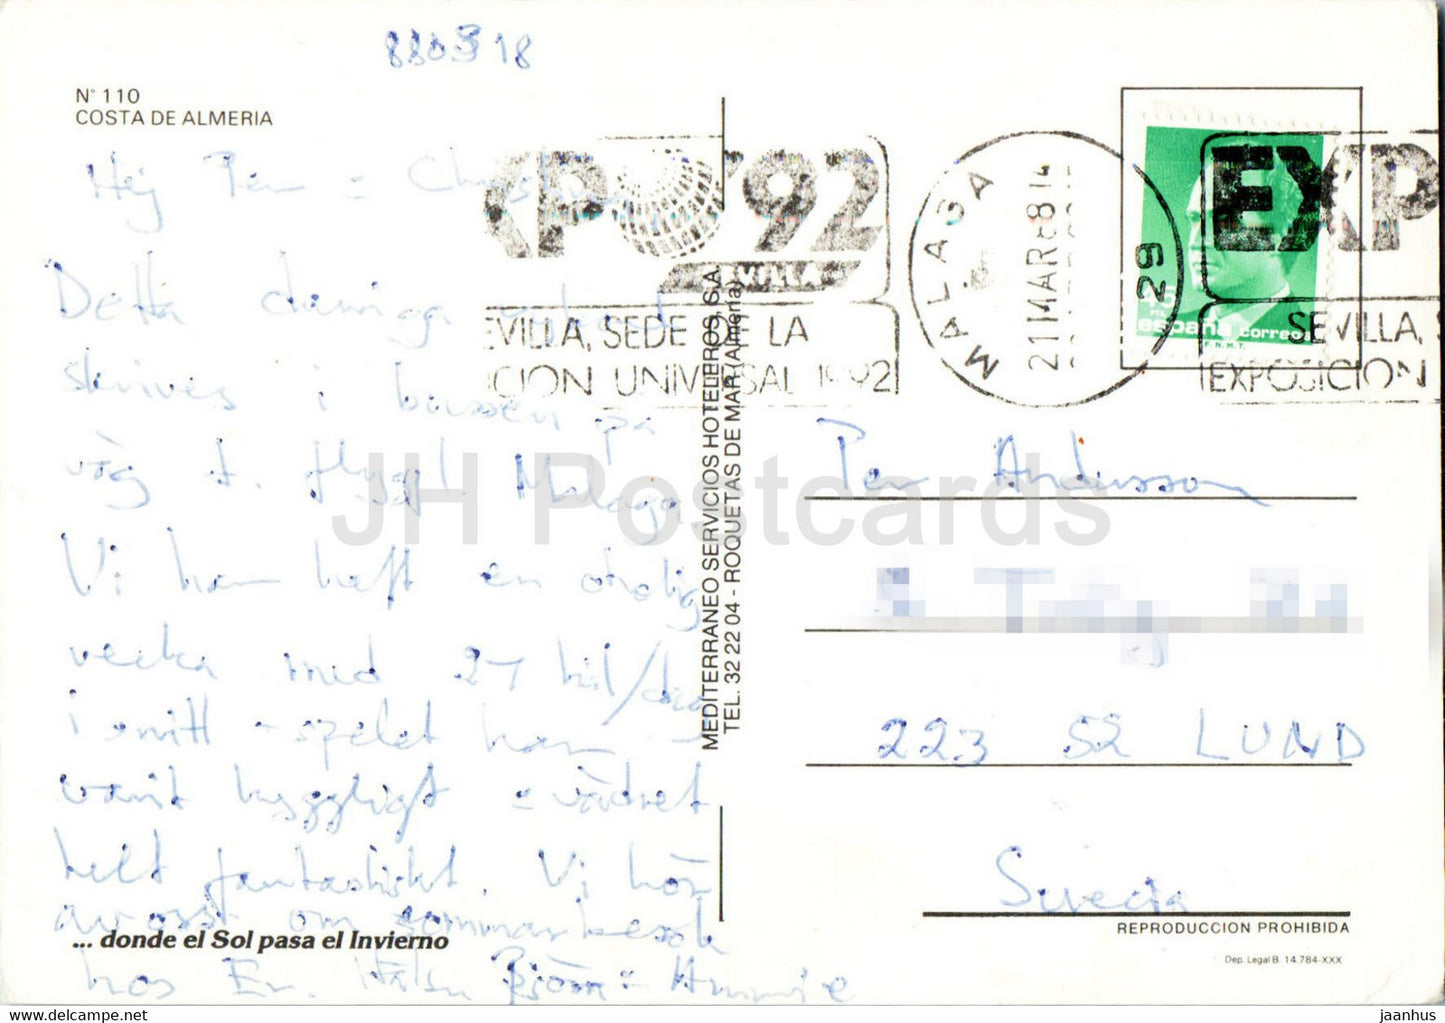 880318
N° 110
COSTA DE ALMERIA
Hej Per =
Detta
skrives i bussen på
väg t. flygpl. Malaga.
Vi har haft en otrolig
vecka med
i snitt - spelet har
varit hyggligt = vädret
helt fantastiskt. Vi hör
av oss om sommarbesök
hos Er. Hälsn Björn = Annie
... donde el Sol pasa el Invierno
MEDITERRANEO SERVICIOS HOTELEROS, S.A.
TEL. 32 22 04 - ROQUETAS DE MAR (Almeria)
XPO '92
SEVILLA
SEVILLA, SEDE DE LA
CION UNIVERSAL 1992
MALAGA
21 MAR 88 14
29
EXP
SEVILLA, S
EXPOSICION
España correos
F.N.M.T.
Per Andersson
223 52 LUND
Suecia
REPRODUCCION PROHIBIDA
Dep. Legal B. 14.784-XXX
JH Postcards
jaanhus